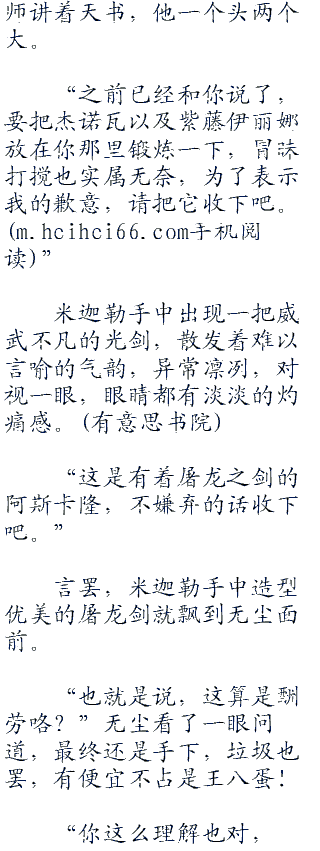 师讲着天书，他一个头两个
大。
“之前已经和你说了，
要把杰诺瓦以及紫藤伊丽娜
放在你那里锻炼一下，冒昧
打搅也实属无奈，为了表示
我的歉意，请把它收下吧。
(m.hcihci66.com手机阅
读)”
米迦勒手中出现一把威
武不凡的光剑，散发着难以
言喻的气韵，异常凛冽，对
视一眼，眼睛都有淡淡的灼
痛感。(有意思书院)
“这是有着屠龙之剑的
阿斯卡隆，不嫌弃的话收下
吧。”
言罢，米迦勒手中造型
优美的屠龙剑就飘到无尘面
前。
“也就是说，这算是酬
劳咯？”无尘看了一眼问
道，最终还是手下，垃圾也
罢，有便宜不占是王八蛋！
“你这么理解也对，